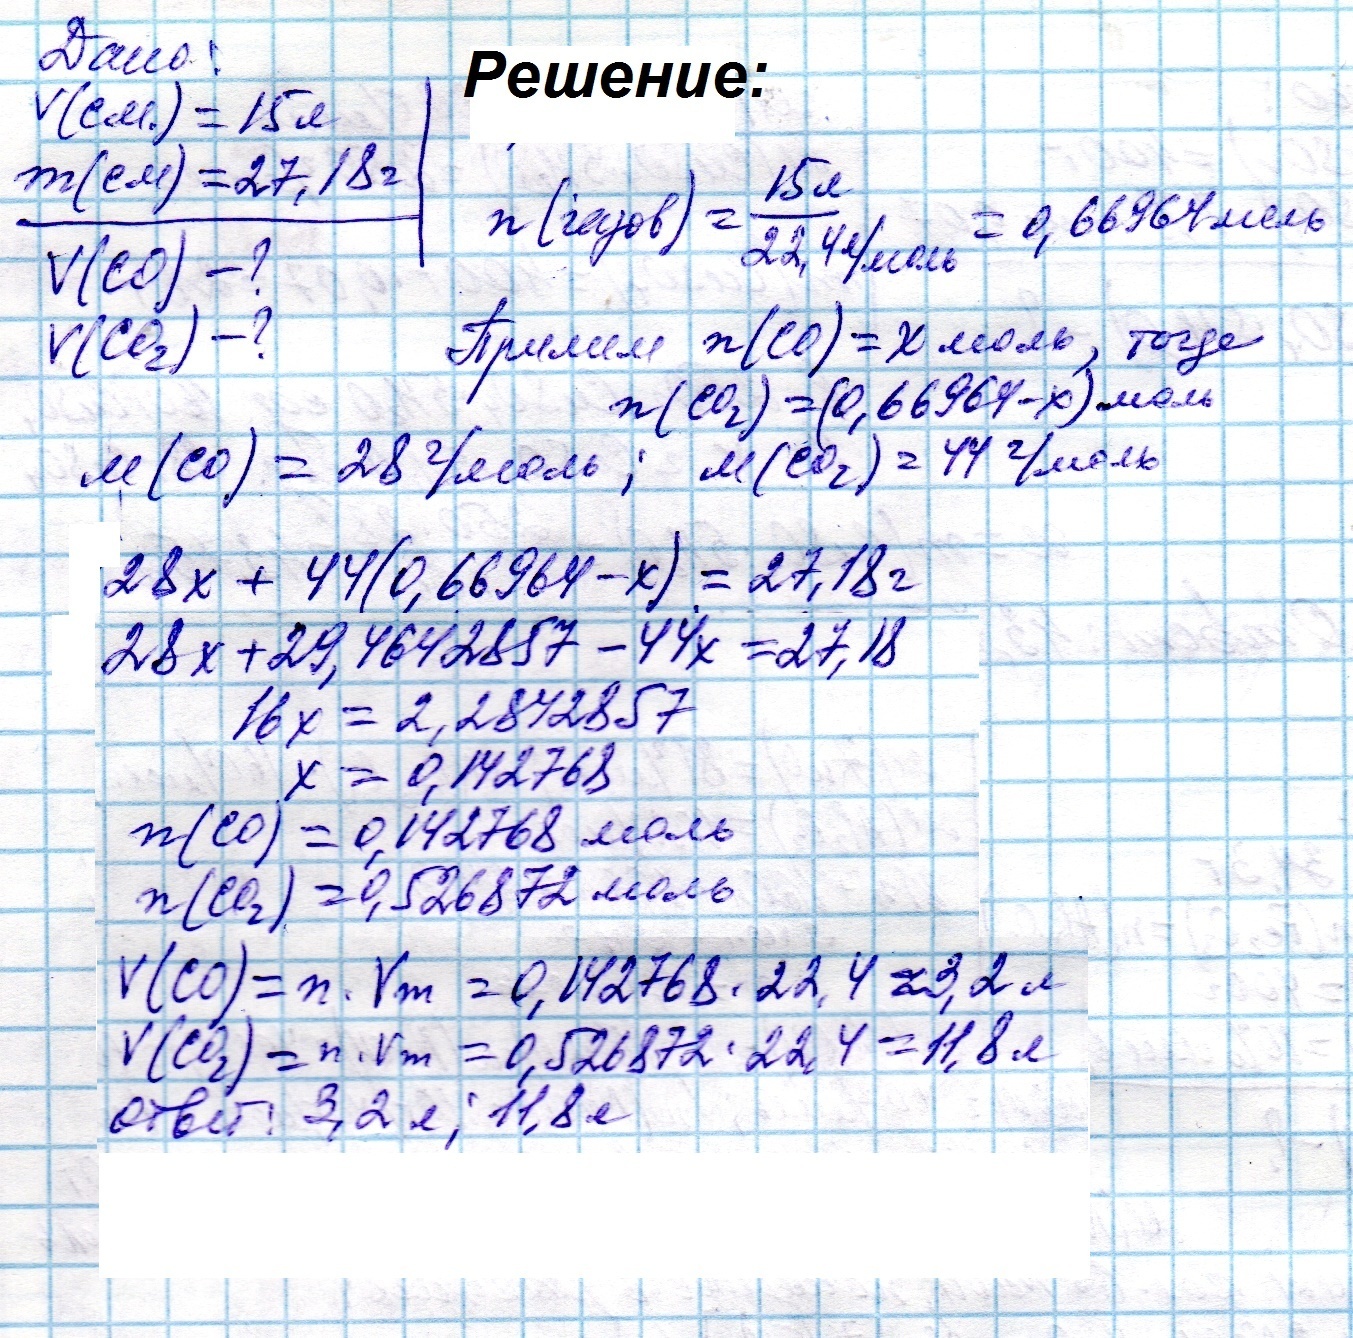 Дано:
V(см.) = 15л
m(см) = 27,18г
V(CO) – ?
V(CO₂) – ?
Решение:
n(газов) = 15л / 22,4л/моль = 0,66964 моль
Примем n(CO) = x моль, тогда
n(CO₂) = (0,66964 – x) моль
M(CO) = 28 г/моль; M(CO₂) = 44 г/моль
28x + 44(0,66964 – x) = 27,18г
28x + 29,4642857 – 44x = 27,18
16x = 2,2842857
x = 0,142768
n(CO) = 0,142768 моль
n(CO₂) = 0,526872 моль
V(CO) = n · Vm = 0,142768 · 22,4 = 3,2 л
V(CO₂) = n · Vm = 0,526872 · 22,4 = 11,8 л
ответ: 3,2 л; 11,8 л